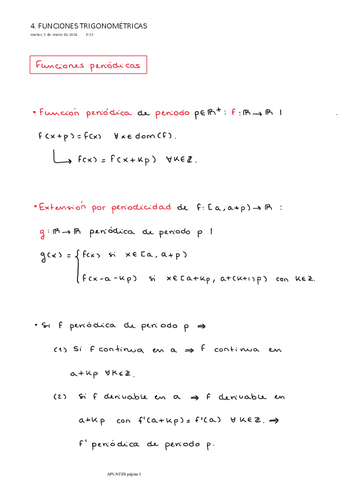 4. FUNCIONES TRIGONOMÉTRICAS
martes, 5 de marzo de 2024
Funciones periódicas
• Función periódica de periodo p∈ℝ⁺: f:ℝ→ℝ |
f(x+p)=f(x) ∀x∈dom(f).
↳ f(x)=f(x+kp) ∀k∈ℤ.
• Extensión por periodicidad de f:[a,a+p)→ℝ:
g:ℝ→ℝ periódica de periodo p |
g(x) = { f(x) si x∈[a,a+p)
f(x-a-kp) si x∈[a+kp, a+(k+1)p) con k∈ℤ.
• Si f periódica de periodo p ⇒
(1) Si f continua en a ⇒ f continua en
a+kp ∀k∈ℤ.
(2) Si f derivable en a ⇒ f derivable en
a+kp con f'(a+kp)=f'(a) ∀k∈ℤ. ⇒
f' periódica de periodo p.
APUNTES página 1